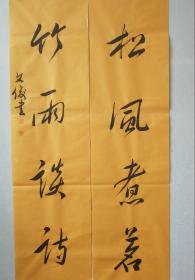 松風煮茗
竹雨談詩
文俊書